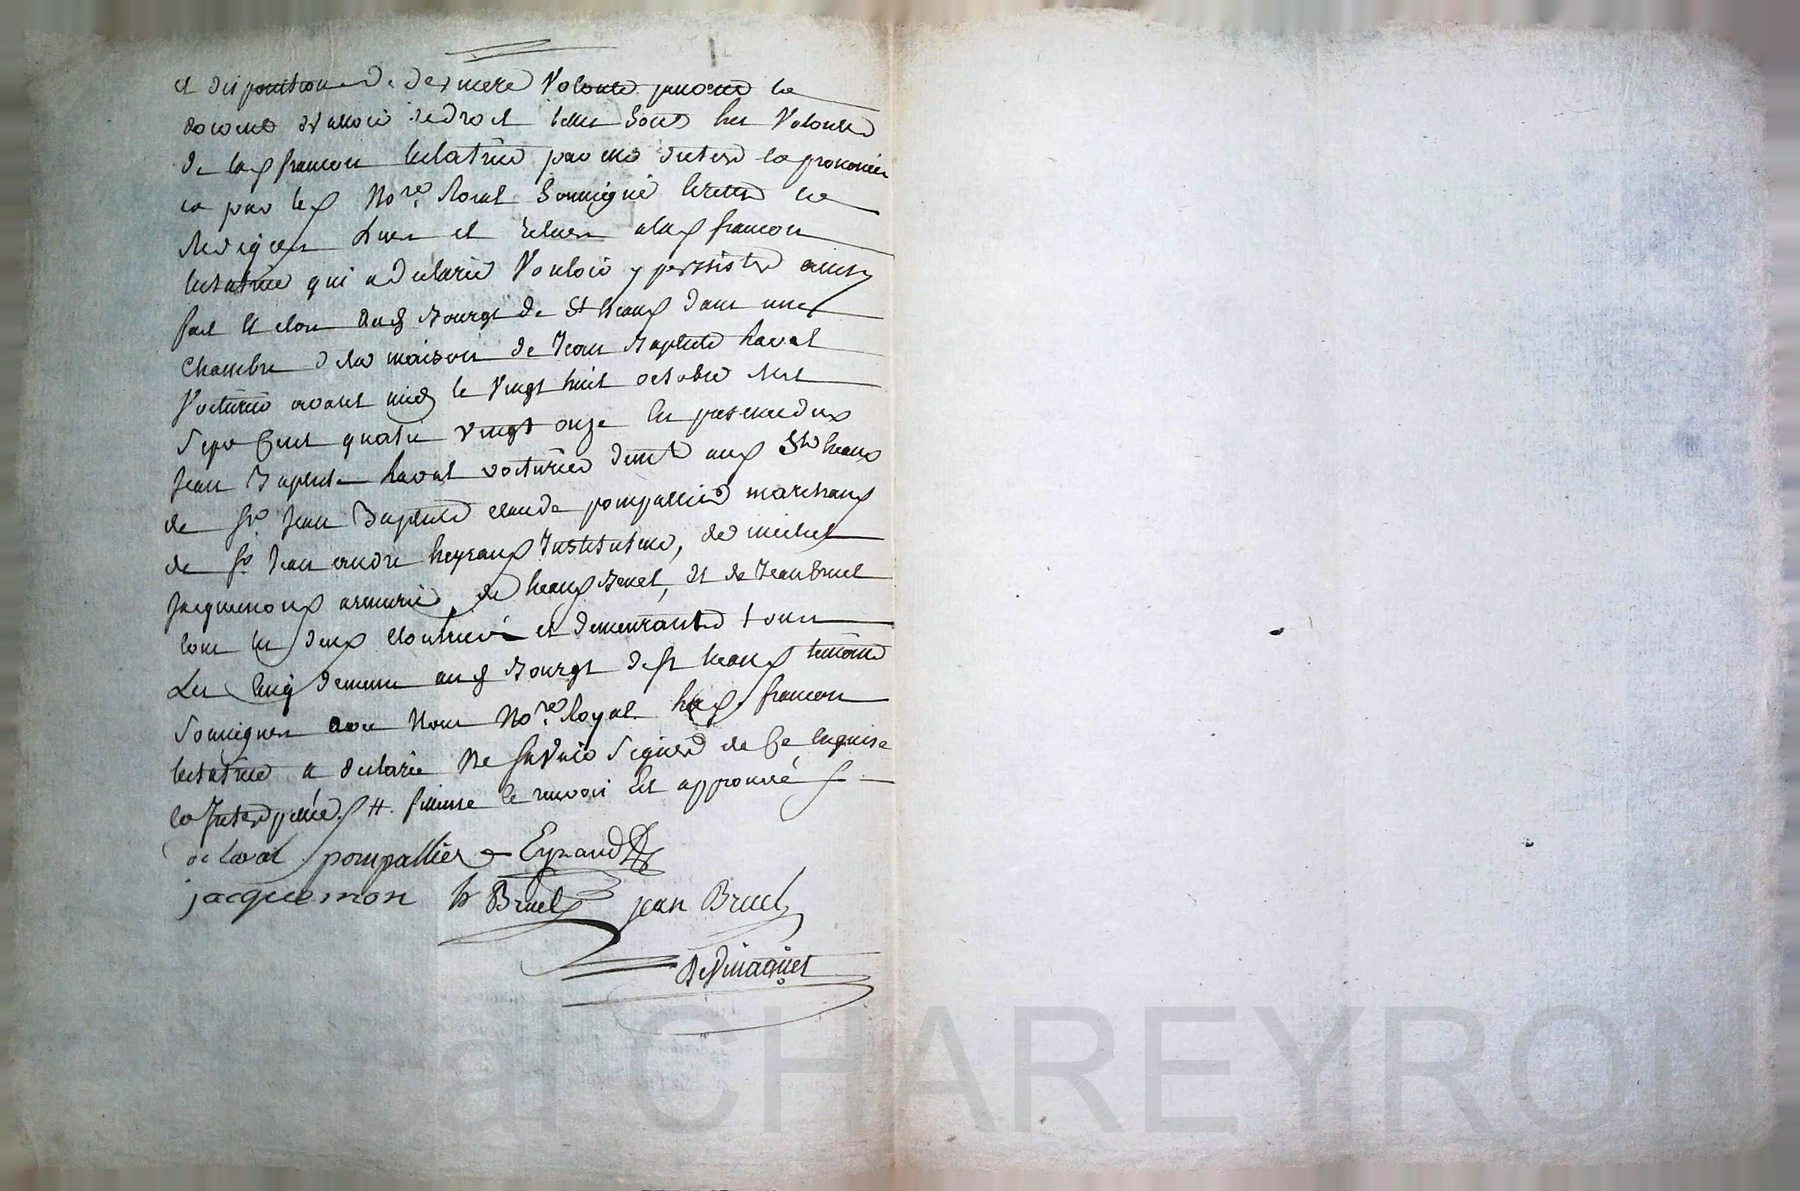 et disposition de derniere Volonté pouvoir
valloir de droit telles sont les Volontés
de lad francon testatrice par elle dictées prononcées
par led No.re Royal soussigné
Redigées Lues et relues a lad francon
testatrice qui a declaré Vouloir y persister ainsy
fait et clos aud Bourg de St heand dans une
Chambre de la maison de Jean Baptiste Laval
Voiturier avant midy le vingt huit octobre mil
Sept Cent quatre vingt onze en presence dud
Jean Baptiste Laval voiturier demt aud St heand
de Sr. Jean Baptiste claude pompallier marchand
de Sr Jean andré heyraud Instituteur, de michel
Jacquemond armurier, de Bruel, et de Jean Bruel
tous les deux et demeurants tous
Les cinq demeurant aud Bourg de st heand temoins
soussignes avec Nous No.re Royal lad francon
testatrice a declaré Ne Savoir Signer de Ce enquise
le renvoi est approuvé
de Laval pompallier Eyraud
jacquemon h Bruel jean Bruel
De Vinaquet
CHAREYRON